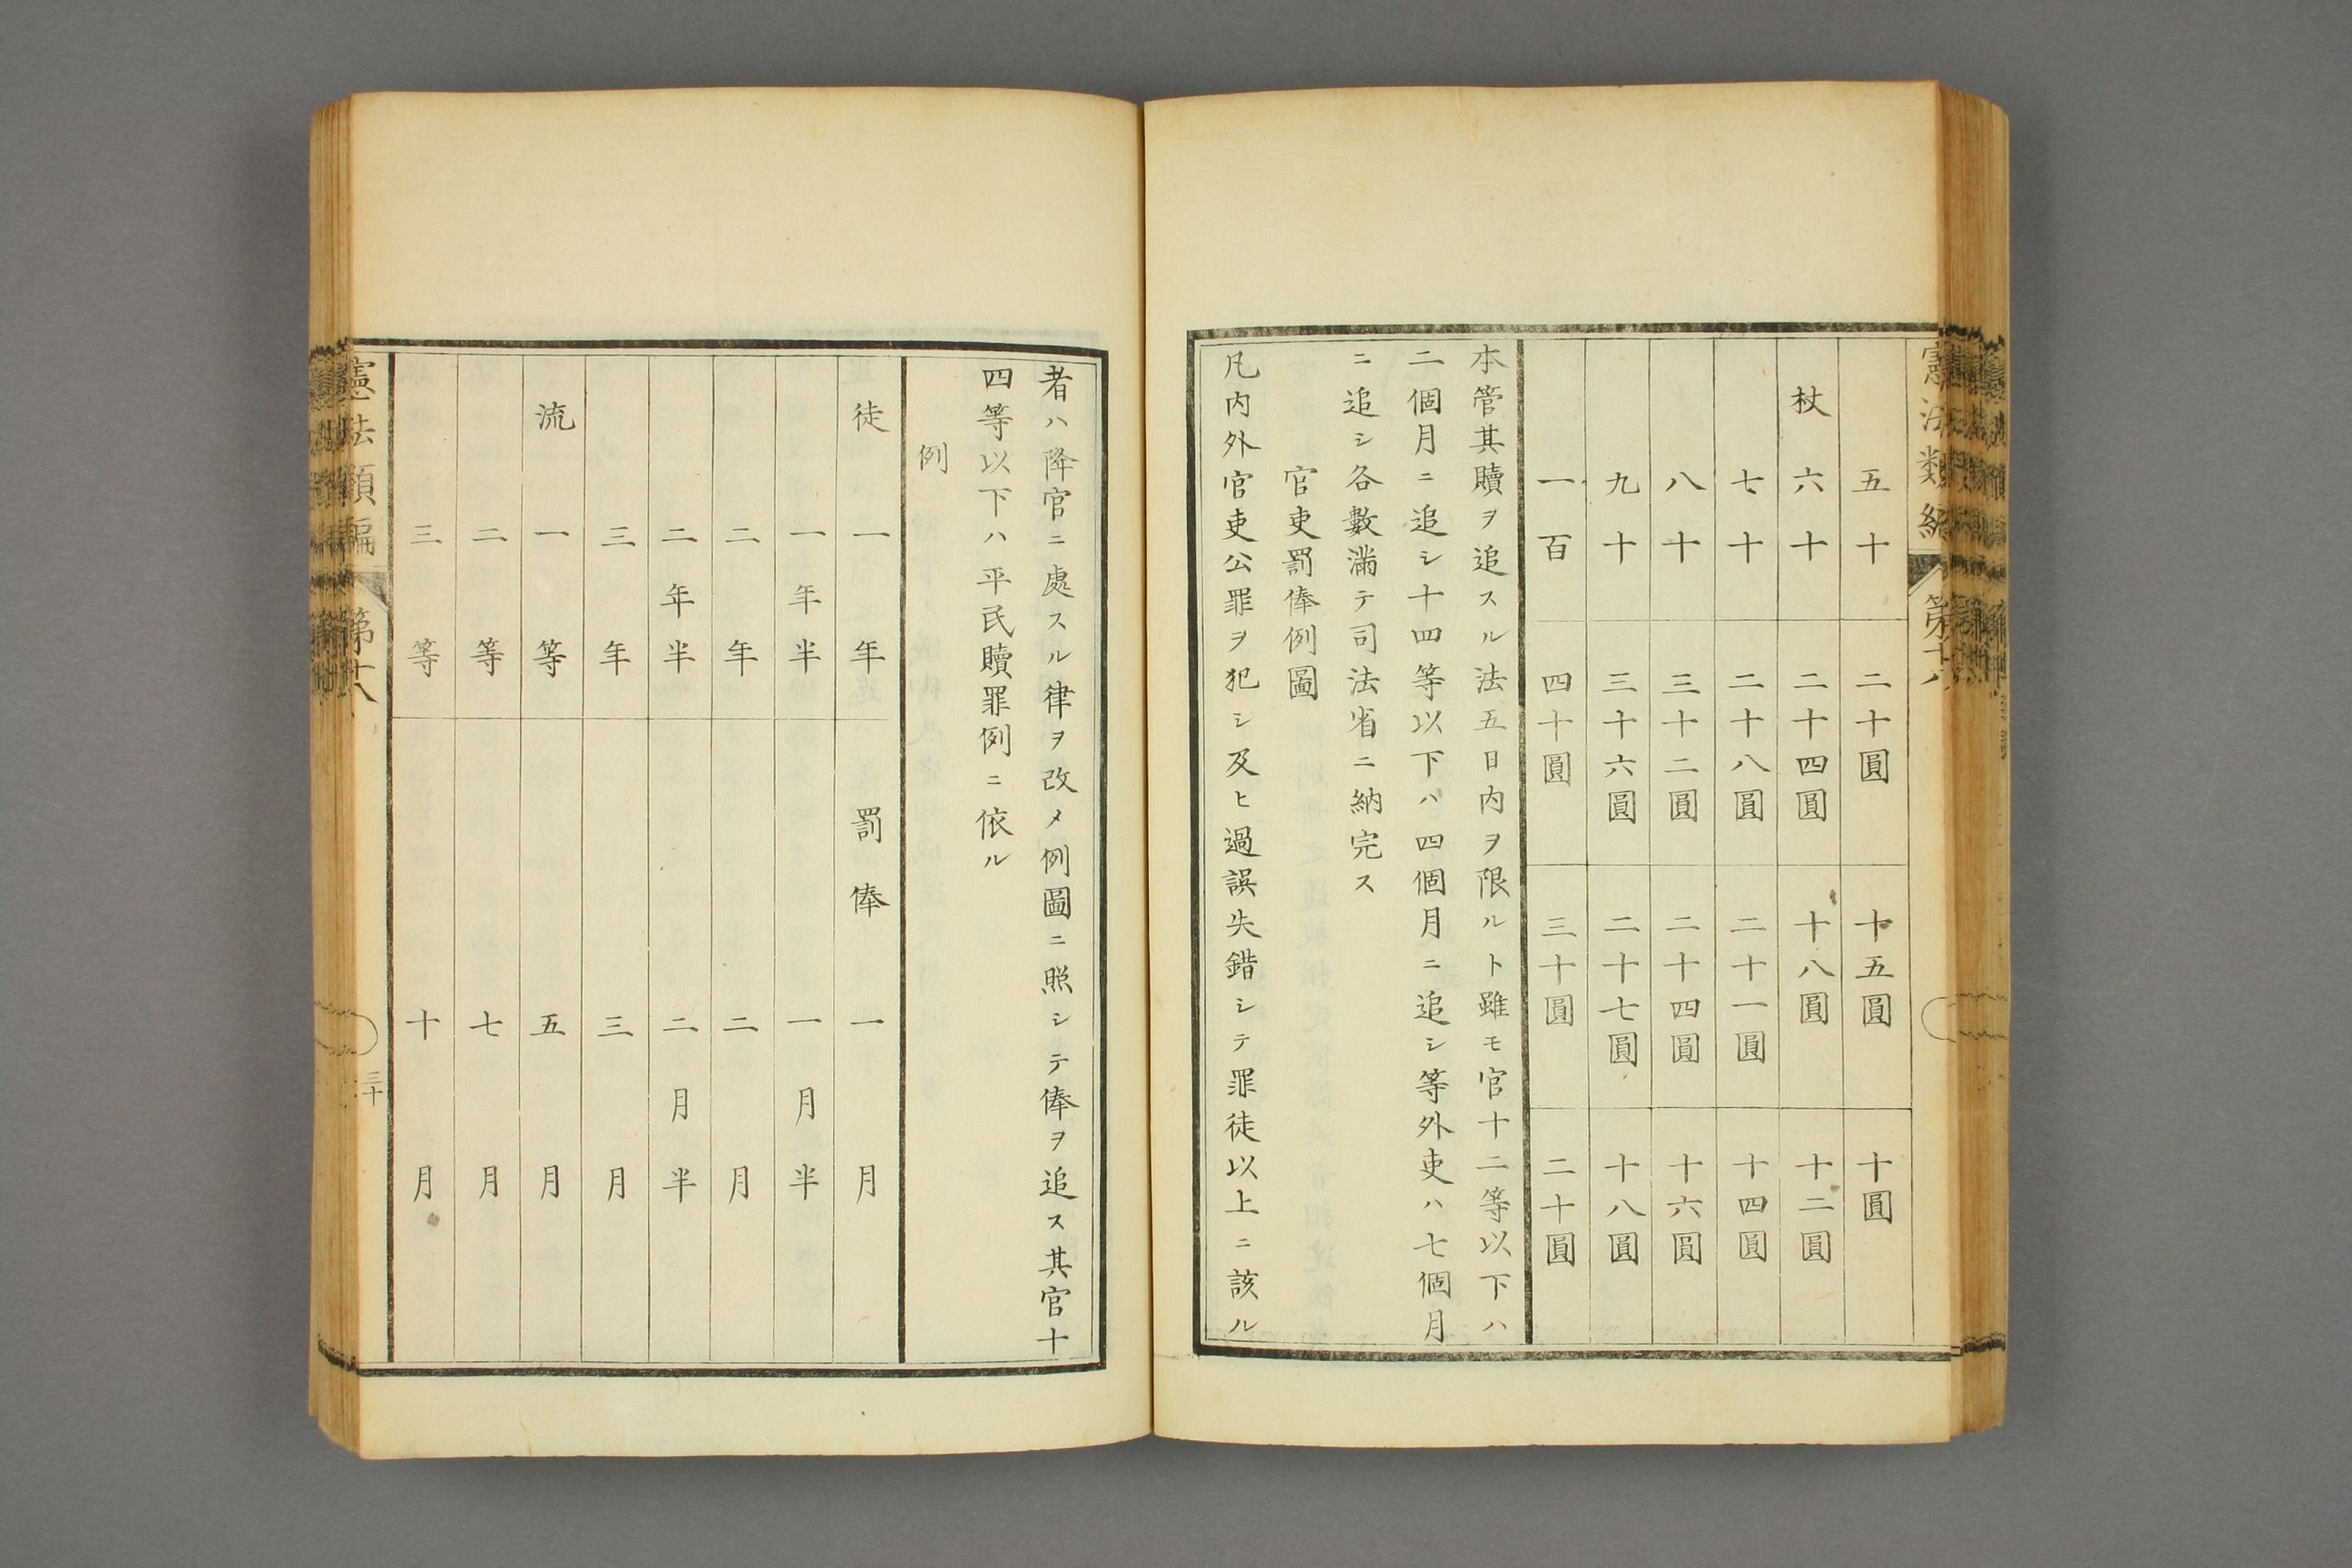 憲法類編 第十八
五十 二十圓 十五圓 十圓
杖 六十 二十四圓 十八圓 十二圓
七十 二十八圓 二十一圓 十四圓
八十 三十二圓 二十四圓 十六圓
九十 三十六圓 二十七圓 十八圓
一百 四十圓 三十圓 二十圓
本管其贖ヲ追スル法五日内ヲ限ルト雖モ官十二等以下ハ
二個月ニ追シ十四等以下ハ四個月ニ追シ等外吏ハ七個月
ニ追シ各數滿テ司法省ニ納完ス
官吏罰俸例圖
凡内外官吏公罪ヲ犯シ及ヒ過誤失錯シテ罪徒以上ニ該ル
者ハ降官ニ處スル律ヲ改メ例圖ニ照シテ俸ヲ追ス其官十
四等以下ハ平民贖罪例ニ依ル
例
徒 一年 罰俸 一月
一年半 一月半
二年 二月
二年半 二月半
三年 三月
流 一等 五月
二等 七月
三等 十月
憲法類編 第十八 三十